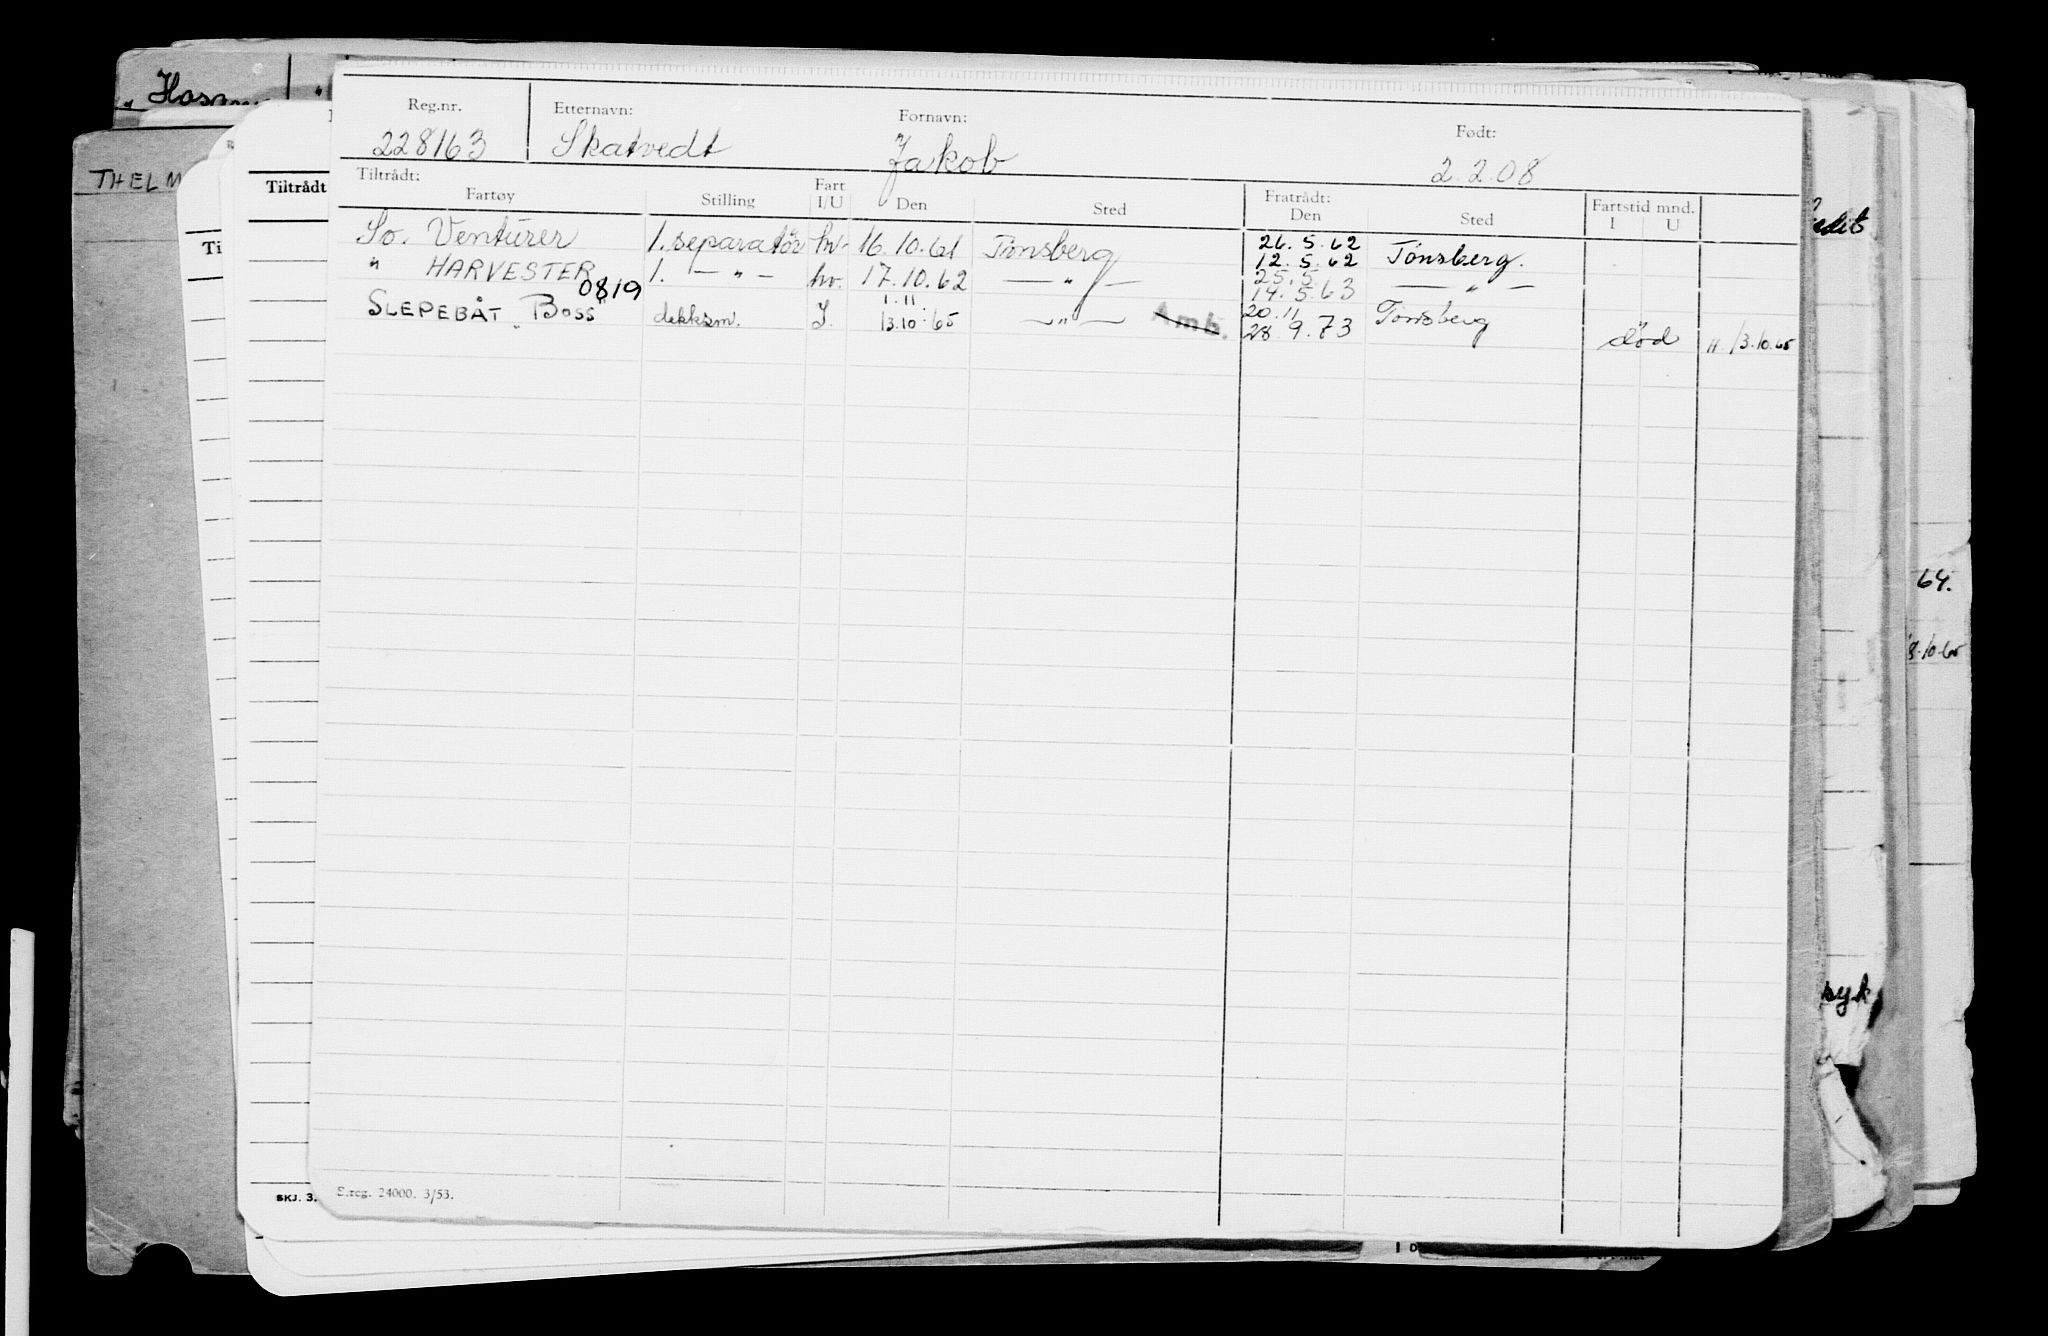 " Hosm
THELM
Tiltrådt
Ti
Reg.nr. Etternavn: Fornavn: Født:
228163 Skatvedt Jakob 2.2.08
Tiltrådt: Fratrådt: Fartstid mnd.
Fartøy Stilling Fart I/U Den Sted Den Sted I U
26.5.62
So. Venturer 1. separatør hv. 16.10.61 Tønsberg 12.5.62 Tønsberg.
25.5
" HARVESTER 1. — " — hv. 17.10.62 — " — 14.5.63 — " —
0819 1.11 20.11
SLEPEBÅT "BOSS" dekksm. I. 13.10.65 — " — Amb. 28.9.73 Tønsberg død H. 13.10.65
edt
64.
8.10.65
syk
SKJ. 3.
S.reg. 24000. 3/53.